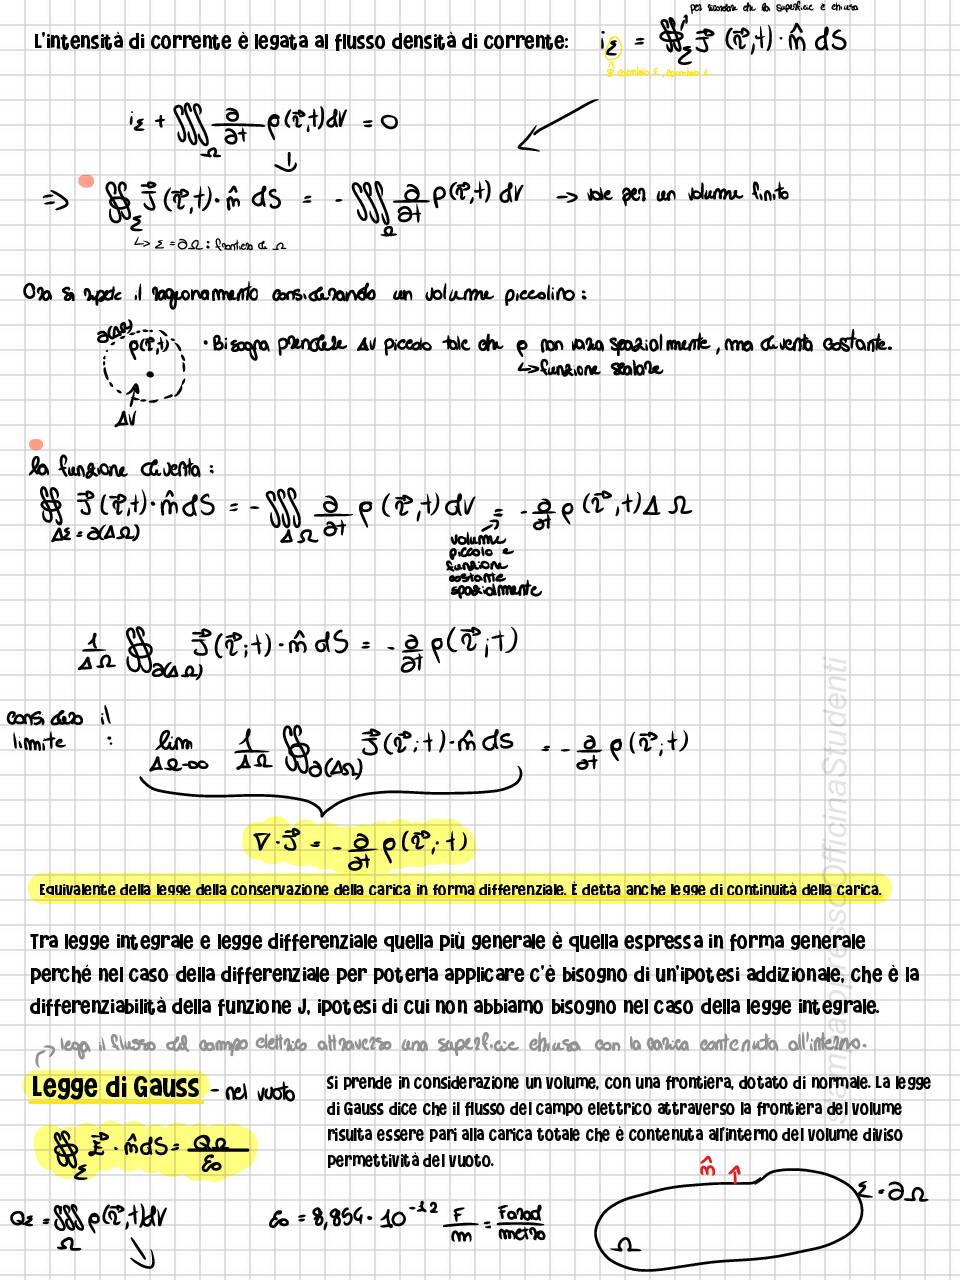 per ricordare che la superficie è chiusa
L'intensità di corrente è legata al flusso densità di corrente: i_Σ = ∯_Σ J⃗ (r⃗,t) · n̂ dS
i_Σ + ∭_Ω ∂/∂t ρ(r⃗,t) dV = 0
=> ∯_Σ J⃗ (r⃗,t) · n̂ dS = - ∭_Ω ∂/∂t ρ(r⃗,t) dV → vale per un volume finito
↳ Σ = ∂Ω : frontiera di Ω
Ora si ripete il ragionamento considerando un volume piccolino :
∂(ΔΩ)
ρ(r⃗,t) · Bisogna prendere ΔV piccolo tale che ρ non varia spazialmente, ma diventa costante.
↳ funzione scalare
ΔV
la funzione diventa :
∯ J⃗ (r⃗,t) · n̂ dS = - ∭ ∂/∂t ρ (r⃗,t) dV = - ∂/∂t ρ (r⃗,t) Δ Ω
ΔΣ = ∂(ΔΩ) ΔΩ
volume
piccolo e
funzione
costante
spazialmente
1/ΔΩ ∯_∂(ΔΩ) J⃗ (r⃗;t) · n̂ dS = - ∂/∂t ρ(r⃗;t)
considero il
limite : lim ΔΩ→∞ 1/ΔΩ ∯_∂(ΔΩ) J⃗ (r⃗;t) · n̂ dS = - ∂/∂t ρ(r⃗;t)
∇ · J⃗ = - ∂/∂t ρ(r⃗;t)
Equivalente della legge della conservazione della carica in forma differenziale. È detta anche legge di continuità della carica.
Tra legge integrale e legge differenziale quella più generale è quella espressa in forma generale
perché nel caso della differenziale per poterla applicare c'è bisogno di un'ipotesi addizionale, che è la
differenziabilità della funzione J, ipotesi di cui non abbiamo bisogno nel caso della legge integrale.
lega il flusso del campo elettrico attraverso una superficie chiusa con la carica contenuta all'interno.
Legge di Gauss - nel vuoto
Si prende in considerazione un volume, con una frontiera, dotato di normale. La legge
di Gauss dice che il flusso del campo elettrico attraverso la frontiera del volume
risulta essere pari alla carica totale che è contenuta all'interno del volume diviso
permettività del vuoto.
∯_Σ E⃗ · n̂ dS = Q_Ω/ε₀
n̂
Σ = ∂Ω
Q_Σ = ∭_Ω ρ(r⃗,t) dV
ε₀ = 8,854 · 10⁻¹² F/m = Farad/metro
Ω
Stampa presso OfficinaStudenti